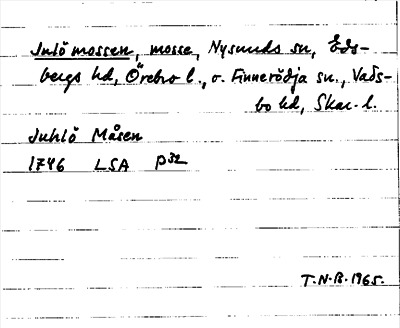 Julö mossen, mosse, Nysunds sn, Eds-
bergs hd, Örebro l., o. Finnerödja sn., Vads-
bo hd, Skar. l.
Juhlö Måsen
1746 LSA P32
T.N.B. 1965.